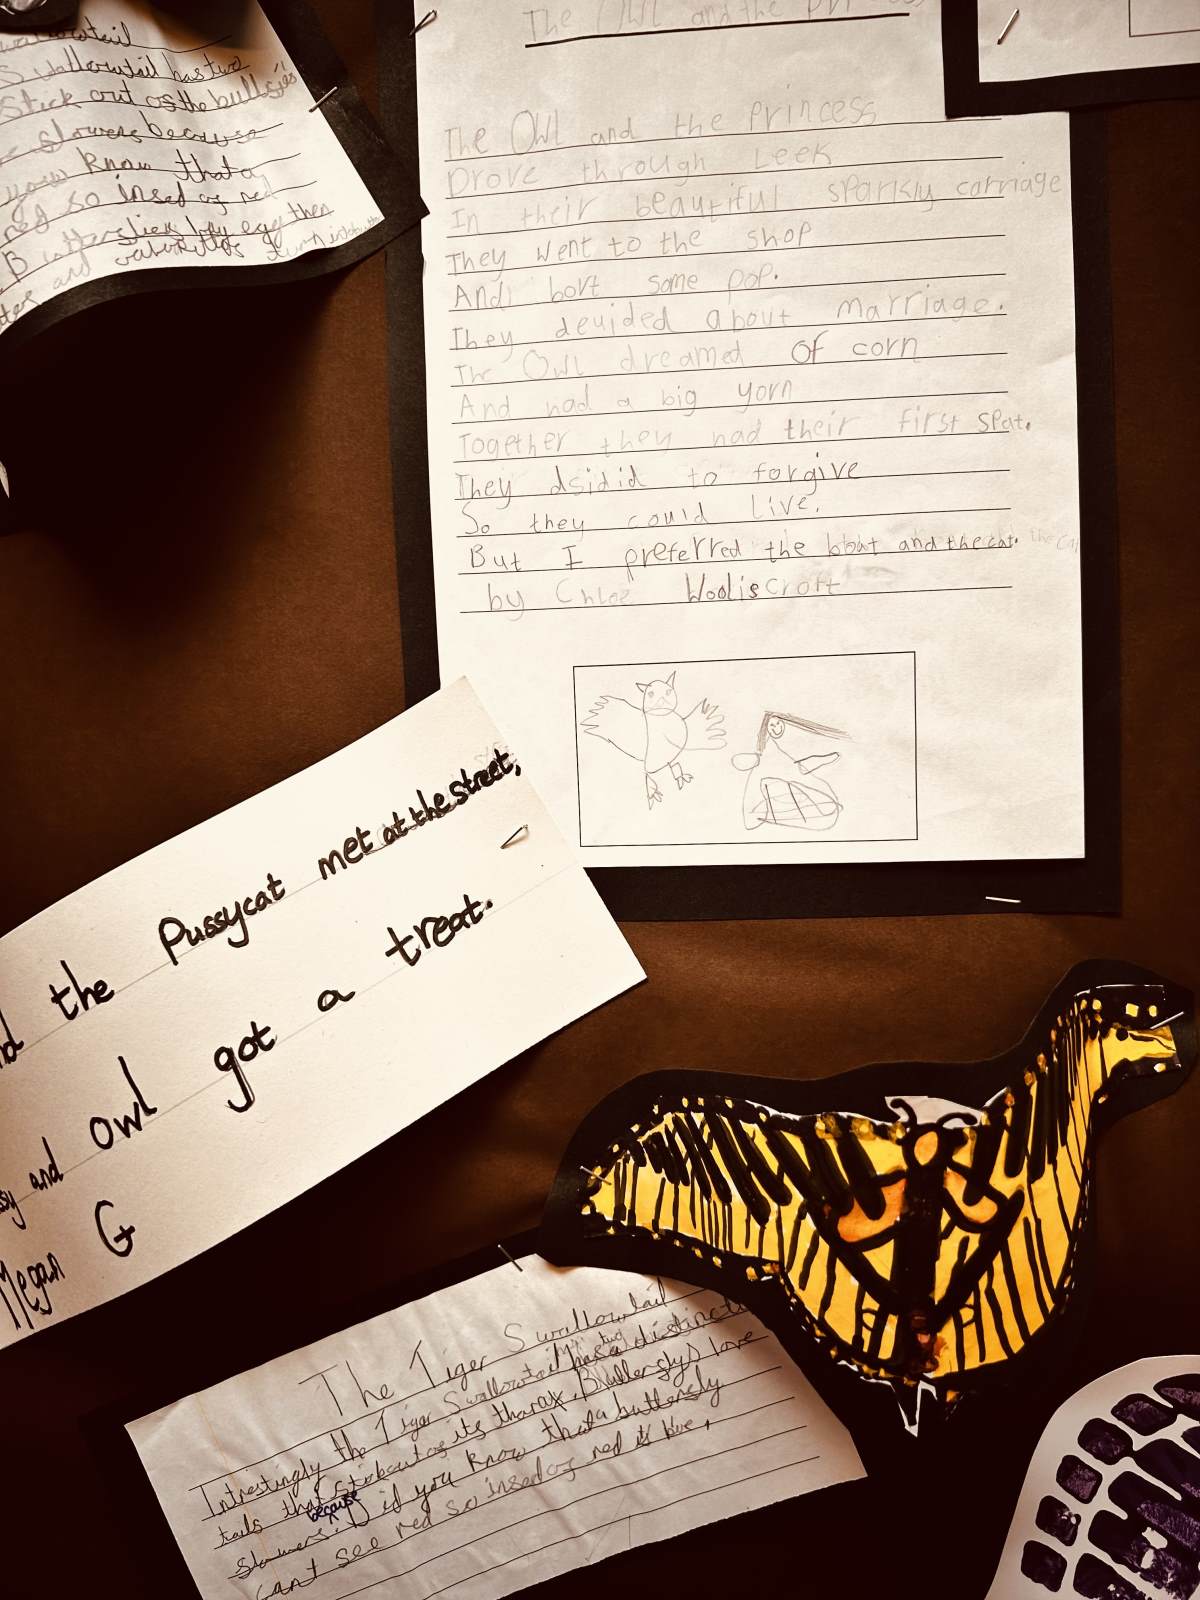 Swallowtail
Swallowtail has two
Stick out of the
because
you know that a
red so insed of red
egg then
and
The Owl and the Princess
The Owl and the Princess
Drove through Leek
In their beautiful sparkly carriage
They went to the shop
And bort some pop.
They deuided about marriage.
The Owl dreamed of corn
And had a big yorn
Together they had their first spat.
They dsidid to forgive
So they could live.
But I preferred the boat and the cat. the cat
by Chloe Wooliscroft
the Pussycat met at the street,
and owl got a treat.
Megan G
The Tiger Swallowtail
Intrestingly the Tiger Swallowtail has two distinct
tails that stick out of its thorax. Butterflys love
because if you know that a butterfly
cant see red so insed of red it's blue.